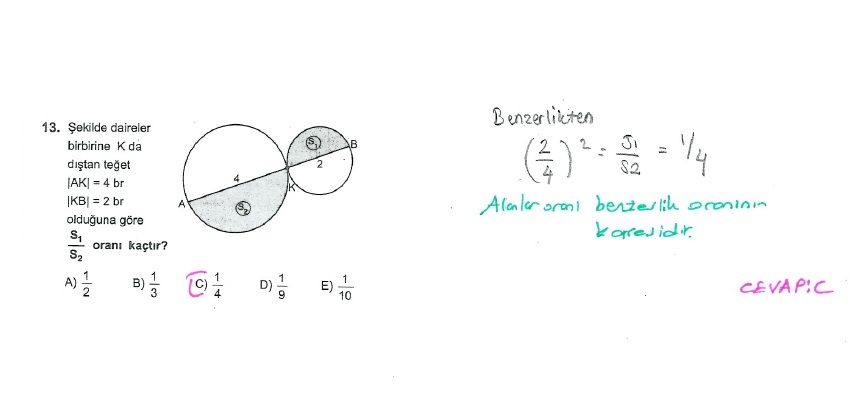 13. Şekilde daireler
birbirine K da
dıştan teğet
|AK| = 4 br
|KB| = 2 br
olduğuna göre
S₁/S₂ oranı kaçtır?
A) 1/2 B) 1/3 C) 1/4 D) 1/9 E) 1/10
S₁
B
2
4
K
A
S₂
Benzerlikten
(2/4)² = S1/S2 = 1/4
Alanlar oranı benzerlik oranının
karesidir.
CEVAP:C